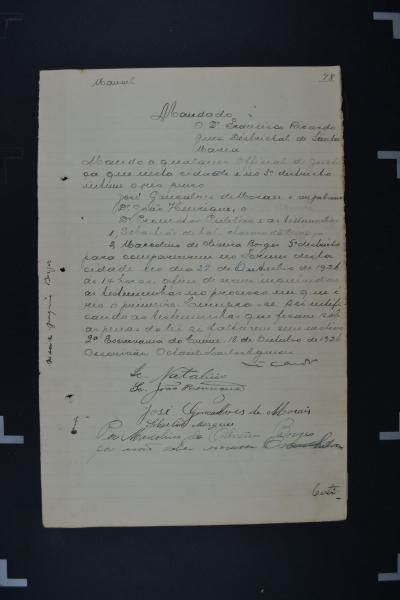 Manoel
78
Mandado
O Dr. Francisco Ricardo
Juiz Districtal de Santa
Maria
Mando a qualquer Official de Justi
ça que nesta cidade e no 5º districto
intime o réo preso
José Gonçalves de Moraes e seu patrono
Dr. João Henrique, o
Dr. Promotor Publico e as testemunhas
1, Sebastião de
2 Marcolino de Oliveira Borges 5º districto
para comparecerem no Forum desta
cidade no dia 27 de Outubro de 1926
ás 14 horas, afim de serem inquiridas
as testemunhas no processo em que é
réo o primeiro. Cumpra-se, scientifi
cando as testemunhas que ficam sob
as penas da lei si faltarem sem motivo
2ª Escrivania do Crime, 18 de Outubro de 1926
Escrivão
Sc. Natalicio
Sc. João Henrique
José Gonsalves de Morais
Marques
Por Marcolino de Oliveira Borges
por não saber escrever
Certi-